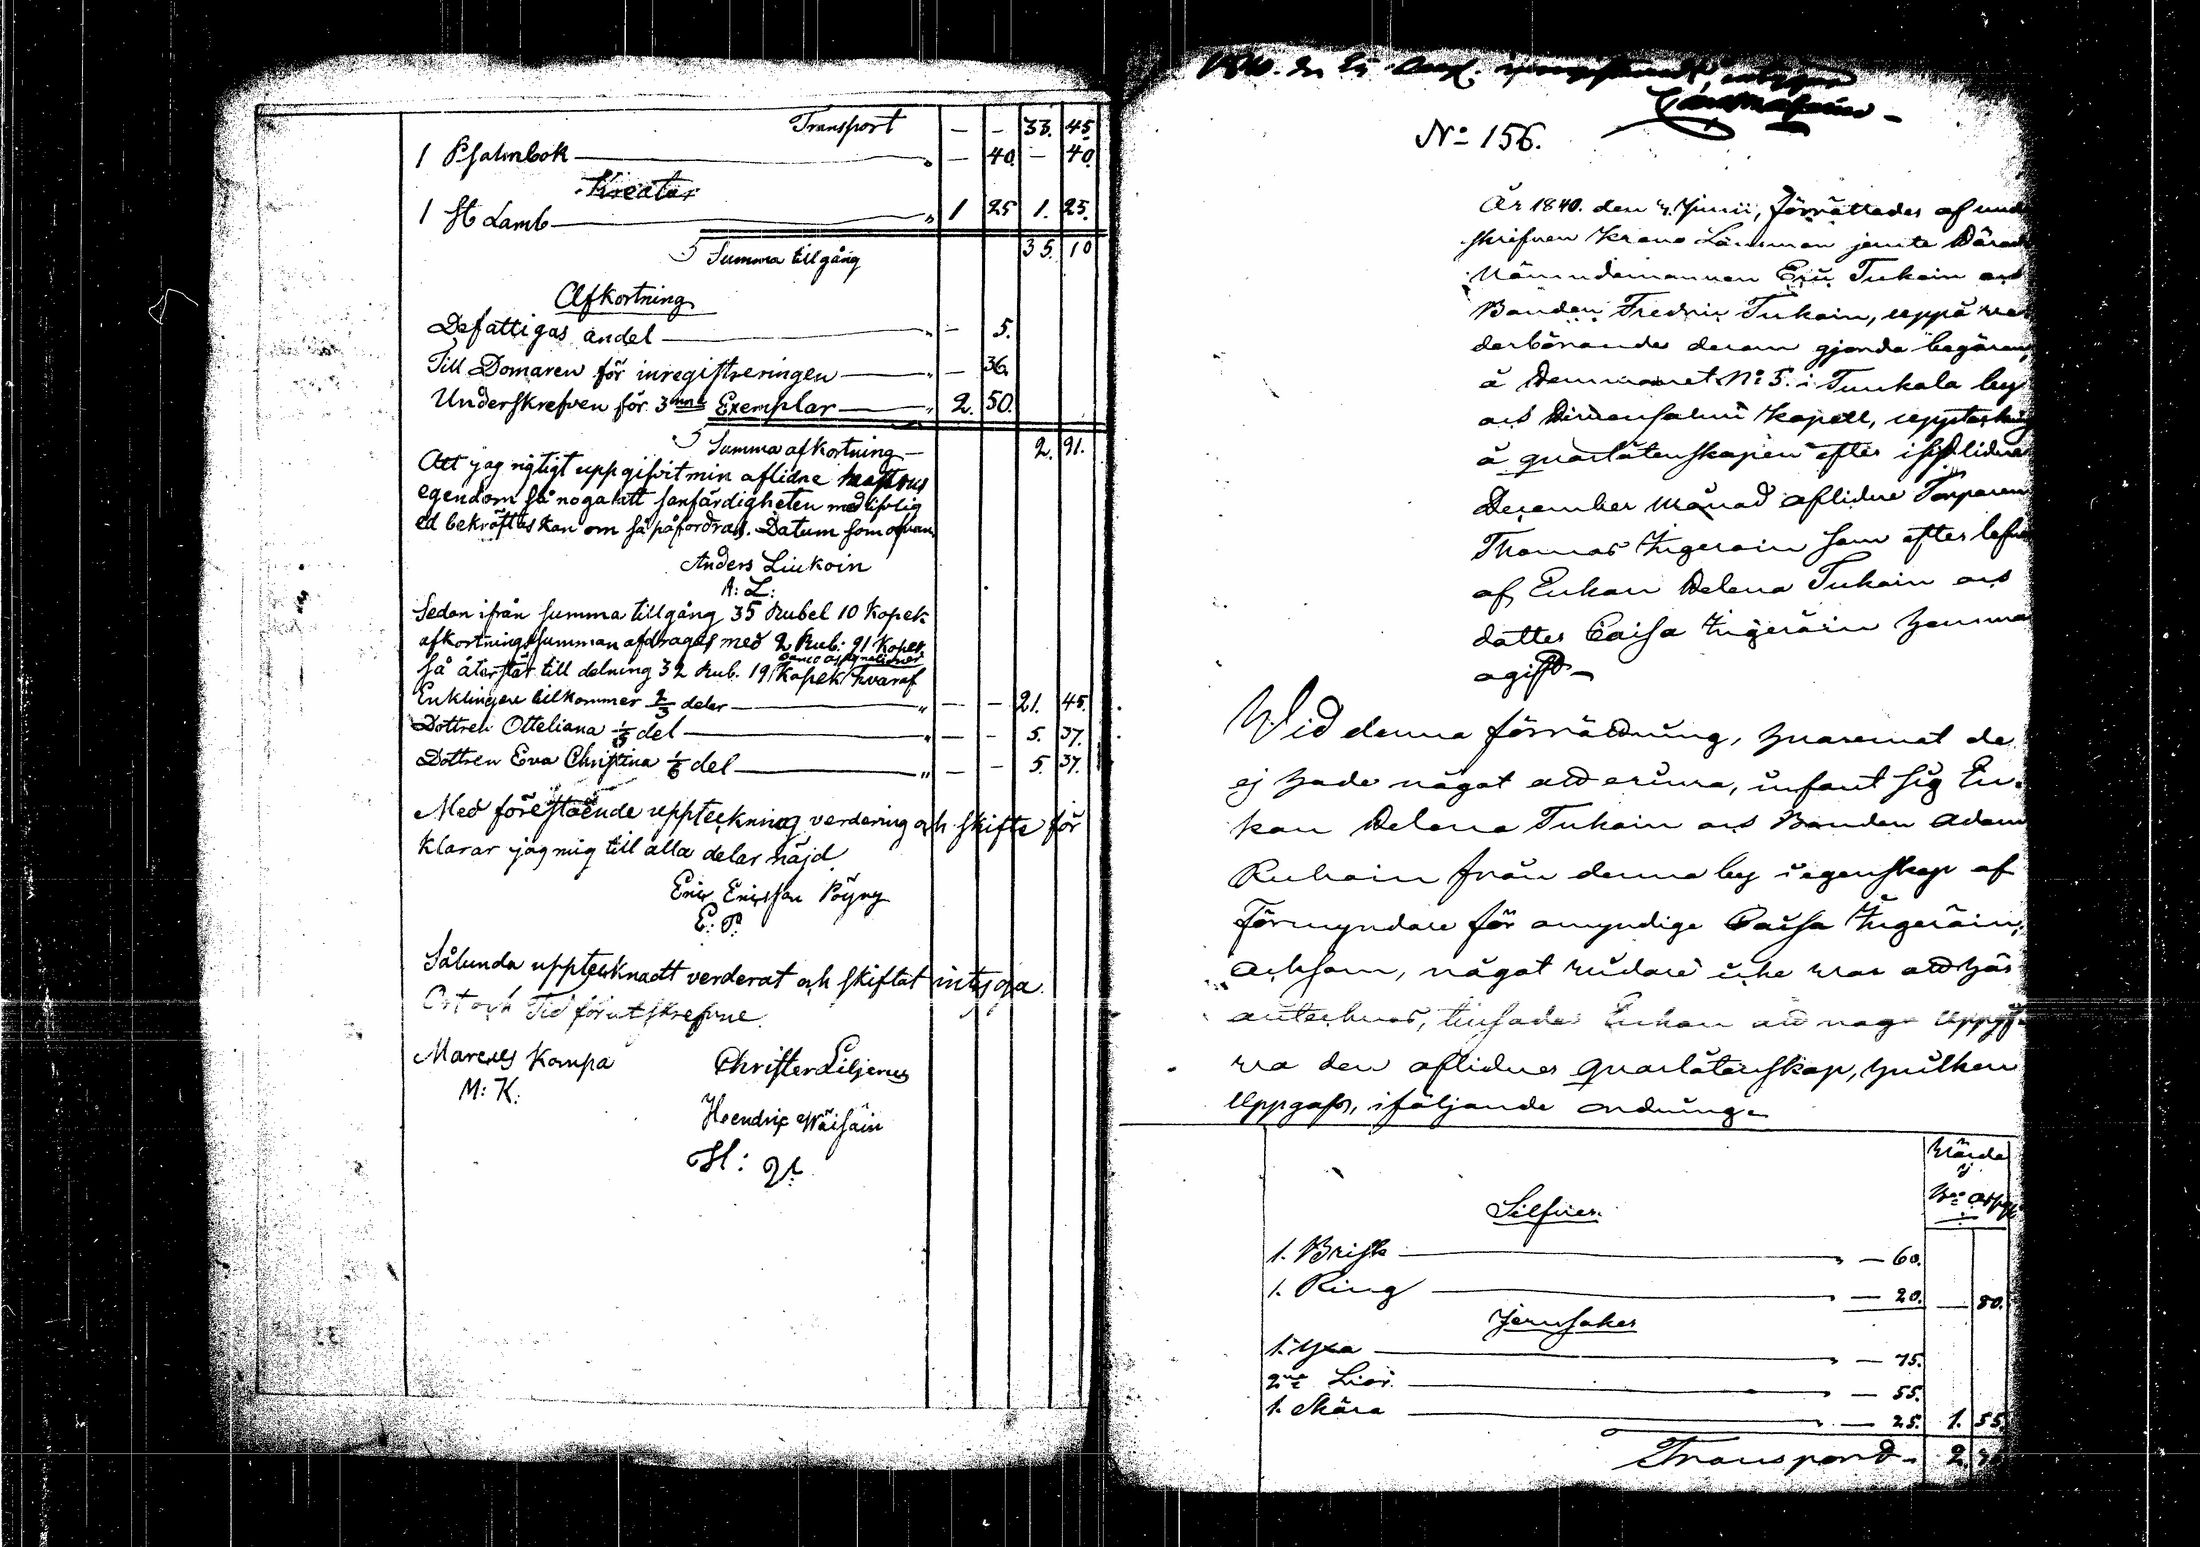 Transport — — 33. 45
1 Psalmbok — 40. — 40.
Kreatur
1 st Lamb 1 25 1. 25.
Summa tillgång 35. 10
Afkortning
Defattigas andel — 5.
Till Domaren för inregistreringen — 36.
Underskrefven för 3nne Exemplar 2. 50.
Summa afkortning — 2. 91.
Att jag rigtigt uppgifvit min aflidne hustrus
egendom så noga att sanfärdigheten med liflig
ed bekräftas kan om så påfordras. Datum som ofvan
Anders Liukoin
A: L:
Sedan ifrån summa tillgång 35 Rubel 10 Kopek
afkortningssumman afdrages med 2 Rub: 91 Kopek
Banco assignationer
så återstår till delning 32 Rub. 19 Kopek hvaraf
Enklingen tilkommer 2/3 delar — — 21. 45.
Dottren Otteliana 1/6 del — — 5. 37.
Dottren Eva Christina 1/6 del — — 5. 37.
Med förestående uppteckning verdering och skifte för
klarar jag mig till alla delar nöjd
Eric Ericsson Pöyry
E: P:
Sålunda upptecknadt verderat och skiftat intyga
Ort och Tid förutskrefne.
Marcus Kompa Christer Liljerus
M: K: Hendric Wäisäin
H: W:
1840. den
No 156.
År 1840. den 4. Junii, förrättades af und
skrifven Krono Länsman jemte
Nämndemannen Eric Tukain och
Bonden Fredric Tukain, uppå ve
derbörandes derom gjorda begäran
å Hemmanet No 5. i Tunkala by
och Kapell, uppteckning
å qvarlåtenskapen efter i sistlidne
December Månad aflidne Torparen
Thomas Ingeroin som efter lefves
af Enkan Helena Tukain och
dotter Caisa Ingeroin hemma
ogift
Wid denna förrättning, hvaremot de
ej hade något att erinra, infant sig En-
kan Helena Tukain och Bonden Adam
Ruhoin från denna by i egenskap af
Förmyndare för omyndige Caisa Ingeroin,
och som, något vidare icke var att här
antecknas, tillsades Enkan att noga uppgif-
va den aflidnes qvarlåtenskap, hvilken
uppgafs, i följande ordning.
Wärde
i
Silfver.
1. Brisk — 60.
1. Ring — 20. — 80.
Jernsaker
1. Yxa — 75.
2ne Liar. — 55.
1. Skära — 25. 1. 55.
Transport. 2.